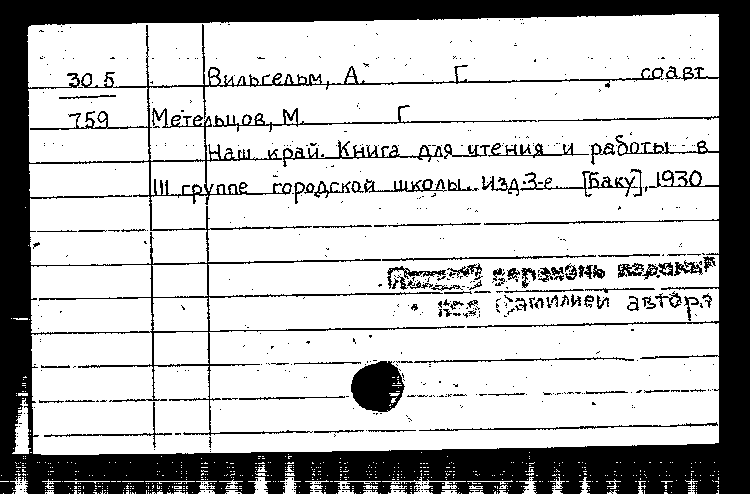 30.5 Вильгельм, А. Г. соавт.
759 Метельцов, М. Г
Наш край. Книга для чтения и работы в
III группе городской школы. Изд.3-е. [Баку], 1930
перемень
под фамилией автора